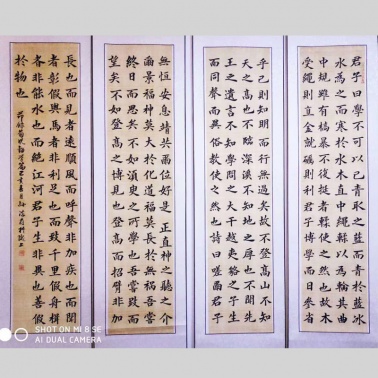 君子曰學不可以已青取之藍而青於藍冰
水為之而寒於水木直中繩輮以為輪其曲
中規雖有槁暴不復挺者輮使之然也故木
受繩則直金就礪則利君子博學而日參省
乎己則知明而行無過故不登高山不知
天之高也不臨深溪不知地之厚也不聞先
王之遺言不知學問之大干越夷貉之子生
而同聲而異俗教使之然也詩曰嗟爾君子
無恒安息靖共爾位好是正直神之聽之介
爾景福神莫大於化道福莫長於無禍吾嘗
終日而思矣不如須臾之所學也吾嘗跂而
望矣不如登高之博見也登高而招臂非加
長也而見者遠順風而呼聲非加疾也而聞
者彰假輿馬者非利足也而致千里假舟楫
者非能水也而絕江河君子生非異也善假
於物也
節錄荀況勸學篇
SHOT ON MI 8 SE
AI DUAL CAMERA